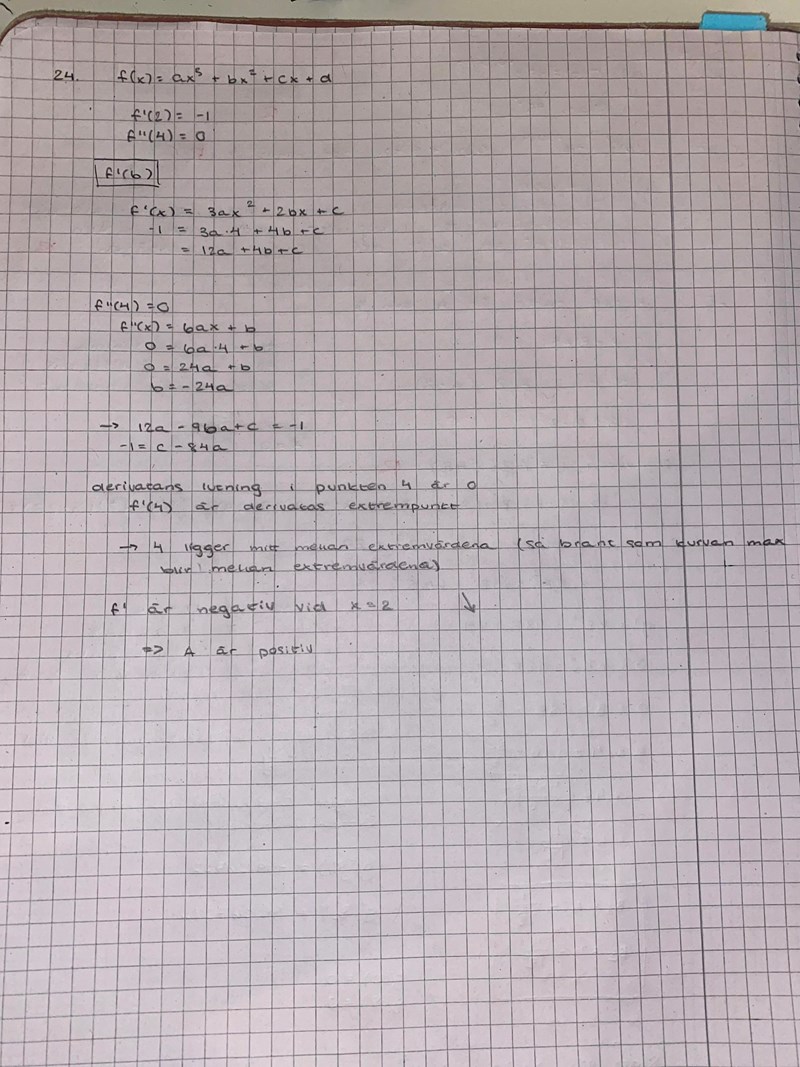 24. f(x) = ax³ + bx² + cx + d
f'(2) = -1
f''(4) = 0
f'(6)
f'(x) = 3ax² + 2bx + c
-1 = 3a·4 + 4b + c
= 12a + 4b + c
f''(4) = 0
f''(x) = 6ax + b
0 = 6a·4 + b
0 = 24a + b
b = -24a
→ 12a - 96a + c = -1
-1 = c - 84a
derivatans lutning i punkten 4 är 0
f'(4) är derivatas extrempunkt
→ 4 ligger mitt mellan extremvärdena (så brant som kurvan max
blir mellan extremvärdena)
f' är negativ vid x = 2 ↓
=> A är positiv